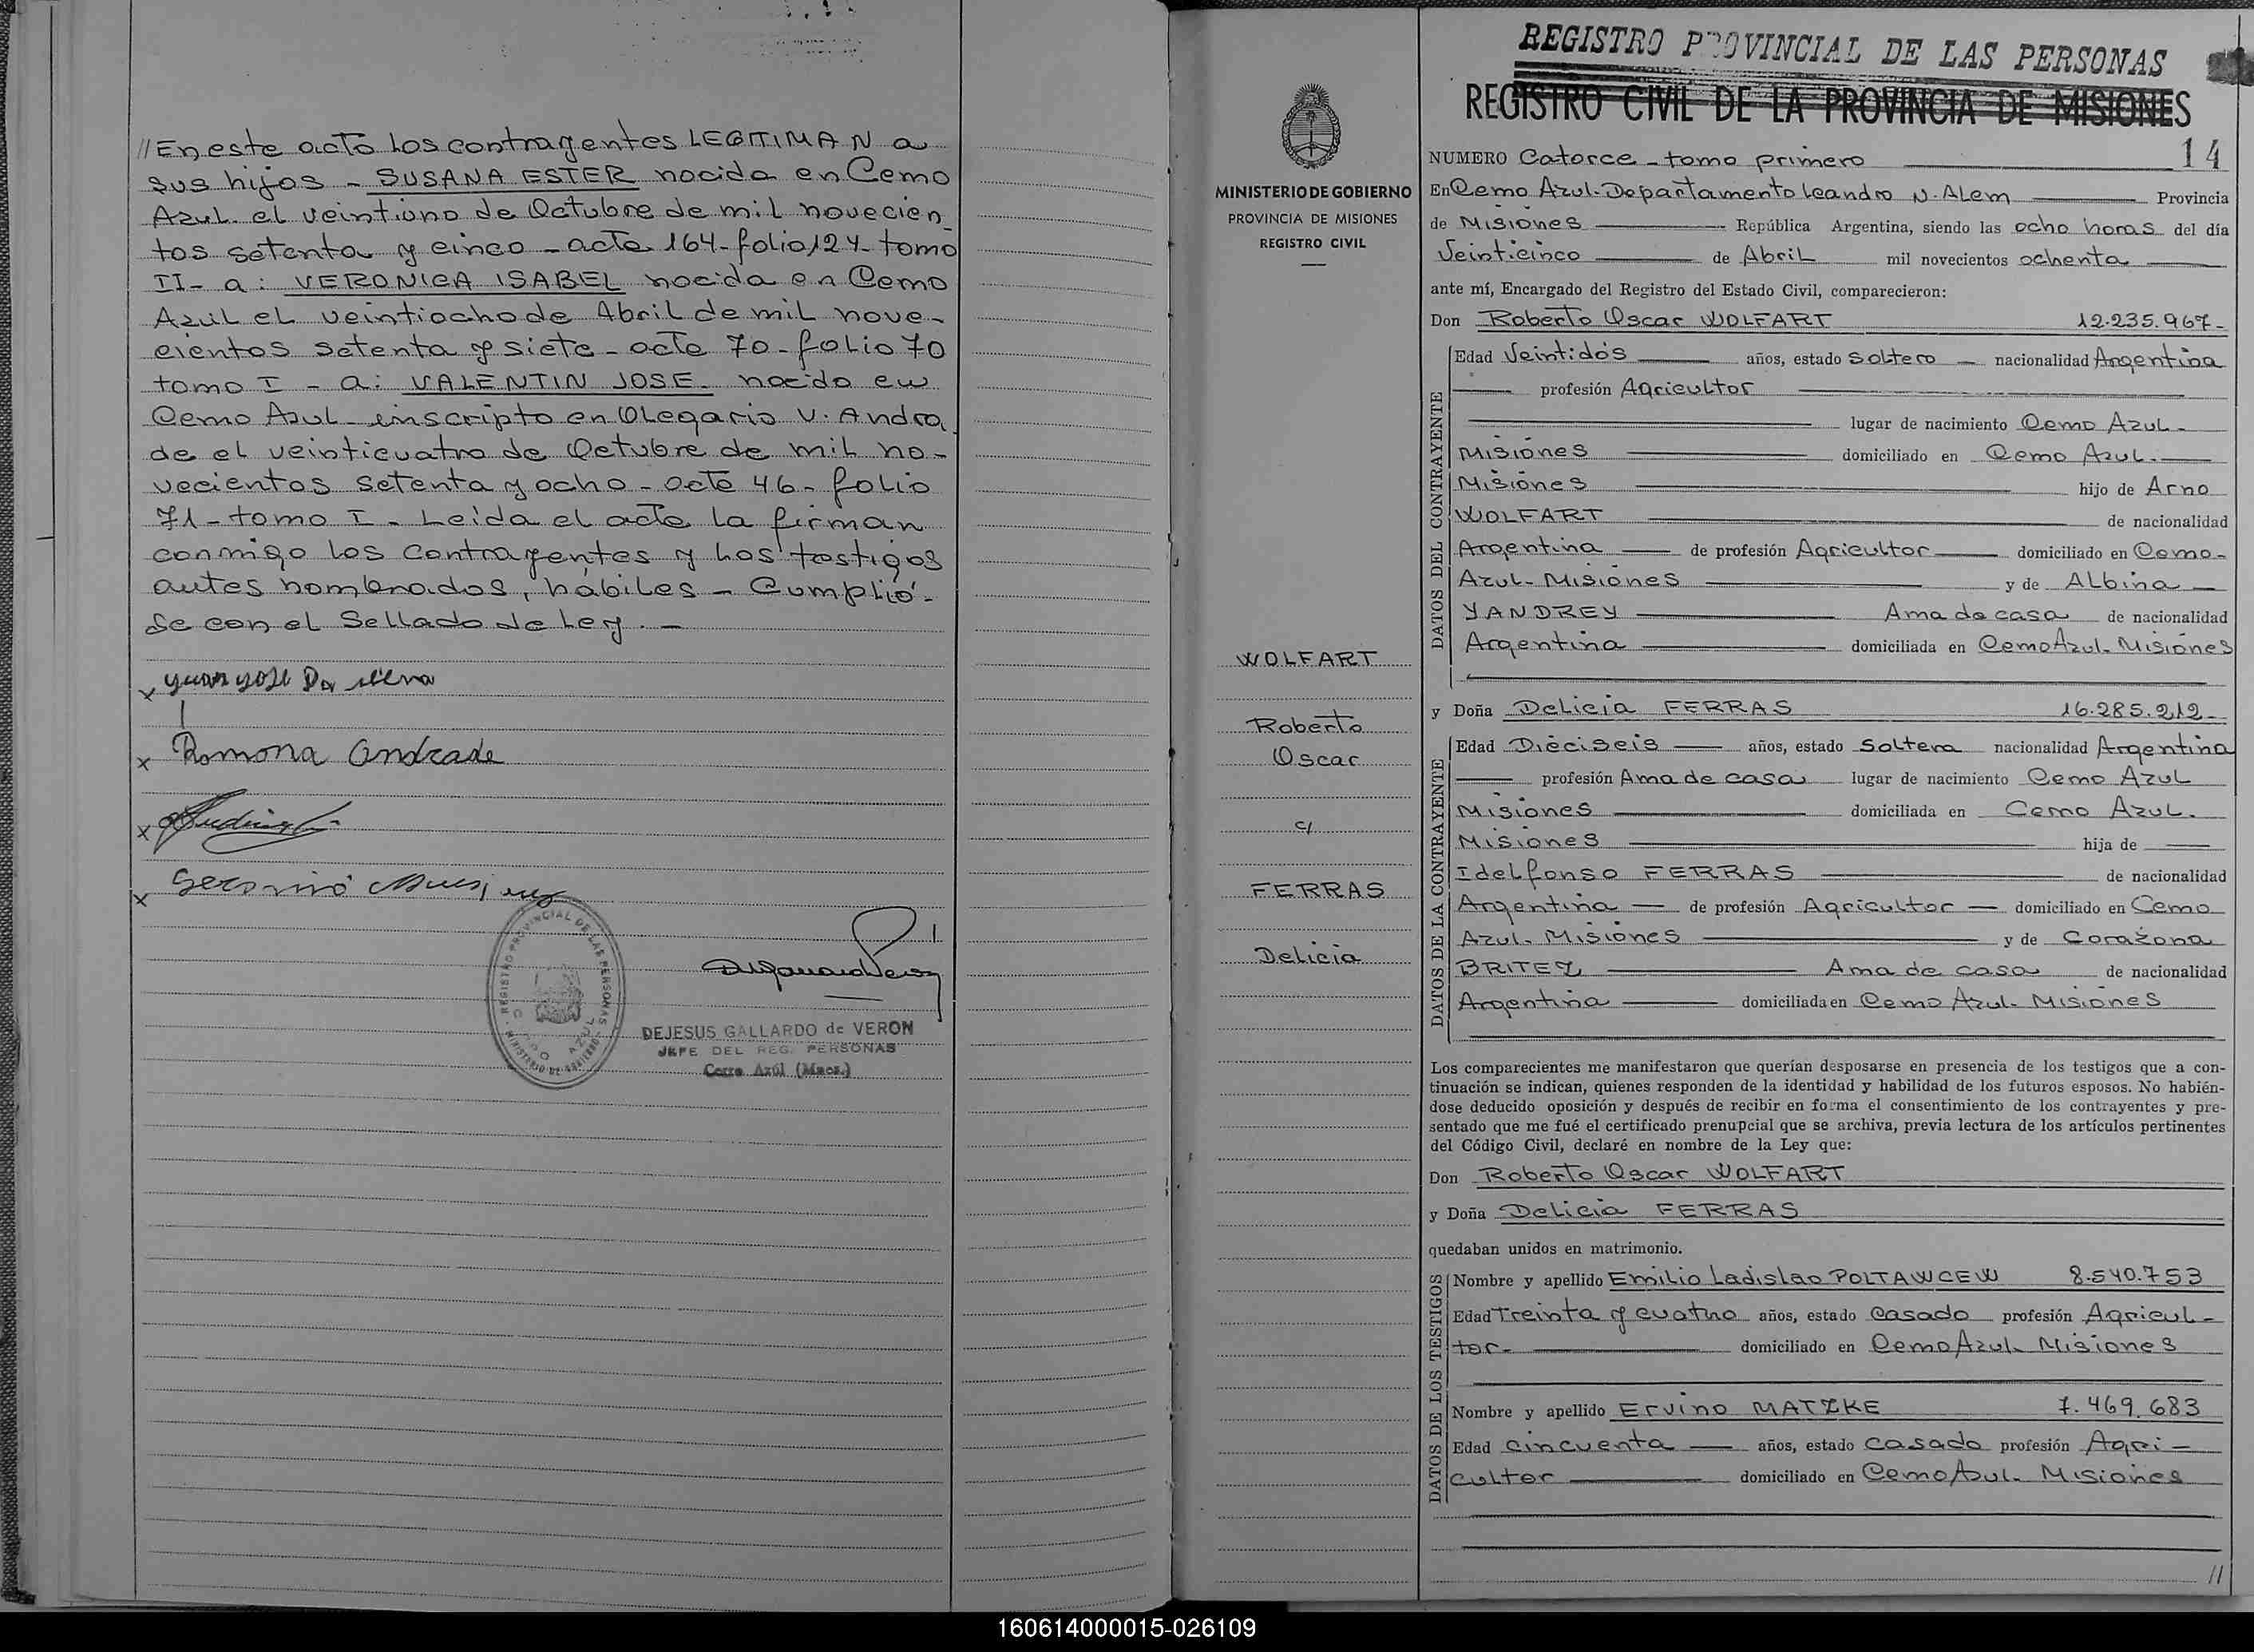 //En este acto los contrayentes LEGITIMAN a
sus hijos - SUSANA ESTER nacida en Cerro
Azul. el veintiuno de Octubre de mil novecien
tos setenta y cinco - acta 164 - folio 124 - tomo
II - a: VERONICA ISABEL nacida en Cerro
Azul el veintiocho de Abril de mil nove-
cientos setenta y siete - acta 70 - folio 70
tomo I - a: VALENTIN JOSE. nacido en
Cerro Azul - inscripto en Olegario V. Andra
de el veinticuatro de Octubre de mil no-
vecientos setenta y ocho - acta 46 - folio
71 - tomo I - Leida el acta la firman
conmigo los contrayentes y los testigos
antes nombrados, hábiles - Cumplió-
se con el Sellado de Ley. -
x Juan José Da
x Ramona Andrade
x
x Geronimo
REGISTRO PROVINCIAL DE LAS PERSONAS
MINISTERIO DE GOBIERNO
CERRO AZUL
DEJESUS GALLARDO de VERON
JEFE DEL REG. PERSONAS
Cerro Azúl (Mnes.)
MINISTERIO DE GOBIERNO
PROVINCIA DE MISIONES
REGISTRO CIVIL
WOLFART
Roberto
Oscar
c/
FERRAS
Delicia
REGISTRO PROVINCIAL DE LAS PERSONAS
REGISTRO CIVIL DE LA PROVINCIA DE MISIONES
14
NUMERO Catorce - tomo primero
En Cerro Azul - Departamento Leandro N. Alem Provincia
de Misiones República Argentina, siendo las ocho horas del día
Veinticinco de Abril mil novecientos ochenta
ante mí, Encargado del Registro del Estado Civil, comparecieron:
Don Roberto Oscar WOLFART 12.235.967-
DATOS DEL CONTRAYENTE
Edad Veintidós años, estado soltero nacionalidad Argentina
profesión Agricultor
lugar de nacimiento Cerro Azul -
Misiones domiciliado en Cerro Azul. -
Misiones hijo de Arno
WOLFART de nacionalidad
Argentina de profesión Agricultor domiciliado en Cerro -
Azul - Misiones y de Albina
YANDREY Ama de casa de nacionalidad
Argentina domiciliada en Cerro Azul. Misiones
y Doña Delicia FERRAS 16.285.212-
DATOS DE LA CONTRAYENTE
Edad Dieciseis años, estado soltera nacionalidad Argentina
profesión Ama de casa lugar de nacimiento Cerro Azul
Misiones domiciliada en Cerro Azul.
Misiones hija de
Idelfonso FERRAS de nacionalidad
Argentina de profesión Agricultor domiciliado en Cerro
Azul. Misiones y de Corazona
BRITEZ Ama de casa de nacionalidad
Argentina domiciliada en Cerro Azul. Misiones
Los comparecientes me manifestaron que querían desposarse en presencia de los testigos que a con-
tinuación se indican, quienes responden de la identidad y habilidad de los futuros esposos. No habién-
dose deducido oposición y después de recibir en forma el consentimiento de los contrayentes y pre-
sentado que me fué el certificado prenupcial que se archiva, previa lectura de los artículos pertinentes
del Código Civil, declaré en nombre de la Ley que:
Don Roberto Oscar WOLFART
y Doña Delicia FERRAS
quedaban unidos en matrimonio.
DATOS DE LOS TESTIGOS
Nombre y apellido Emilio Ladislao POLTAWCEW 8.540.753
Edad Treinta y cuatro años, estado casado profesión Agricul-
tor - domiciliado en Cerro Azul. Misiones
Nombre y apellido Ervino MATZKE 7.469.683
Edad cincuenta años, estado casado profesión Agri-
cultor domiciliado en Cerro Azul. Misiones
//
160614000015-026109